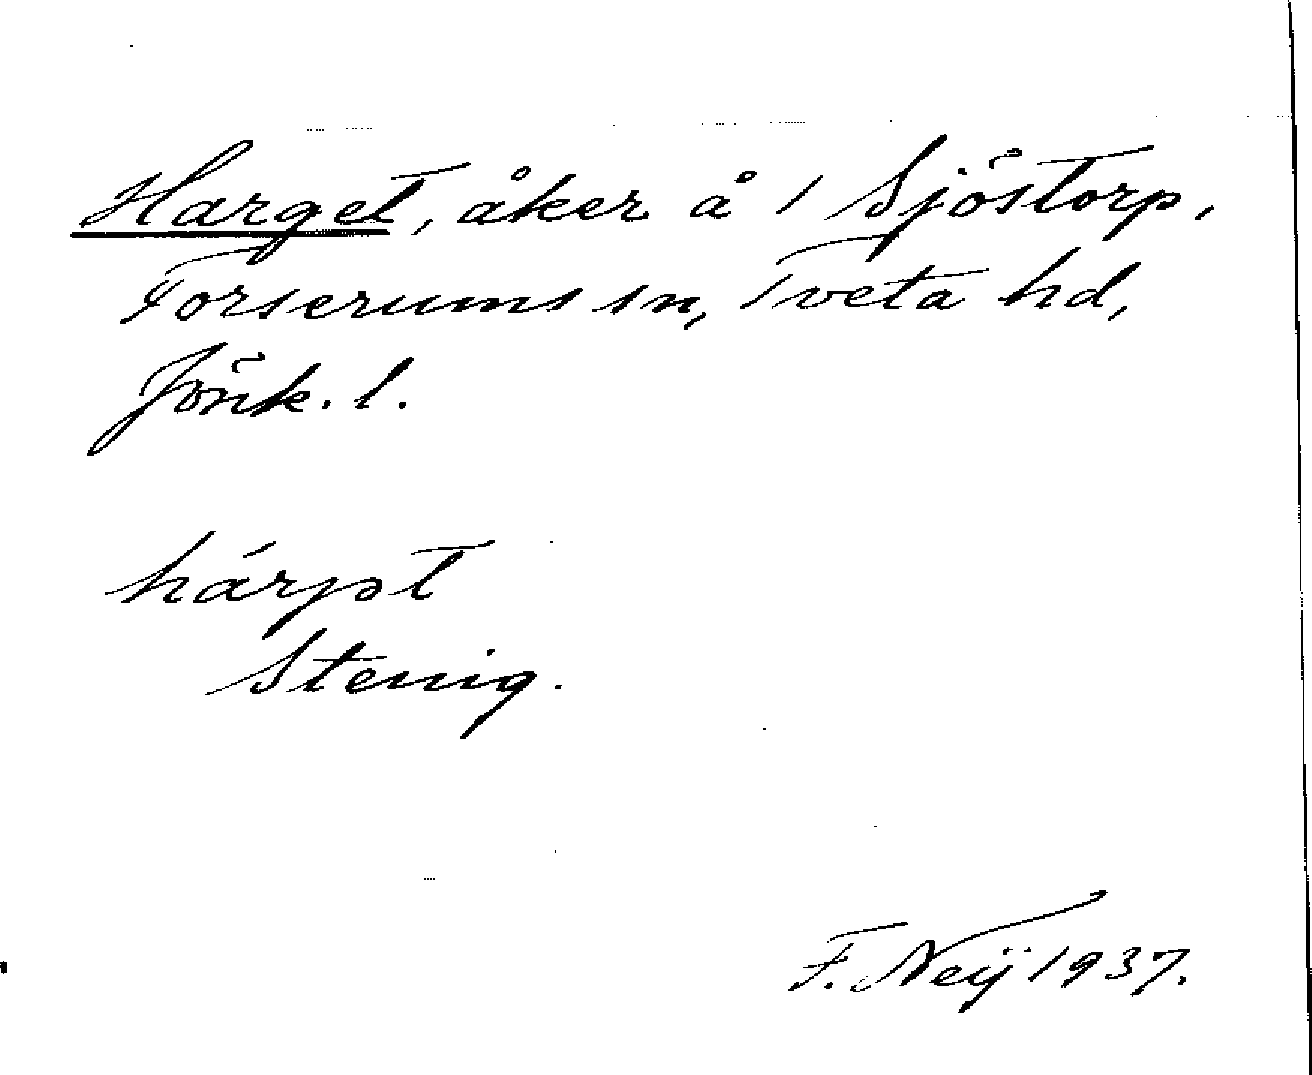 Harget, åker å 1 Sjöstorp,
Forserums sn, Tveta hd,
Jönk. l.
hárjət
Stenig.
F. Neij 1937.